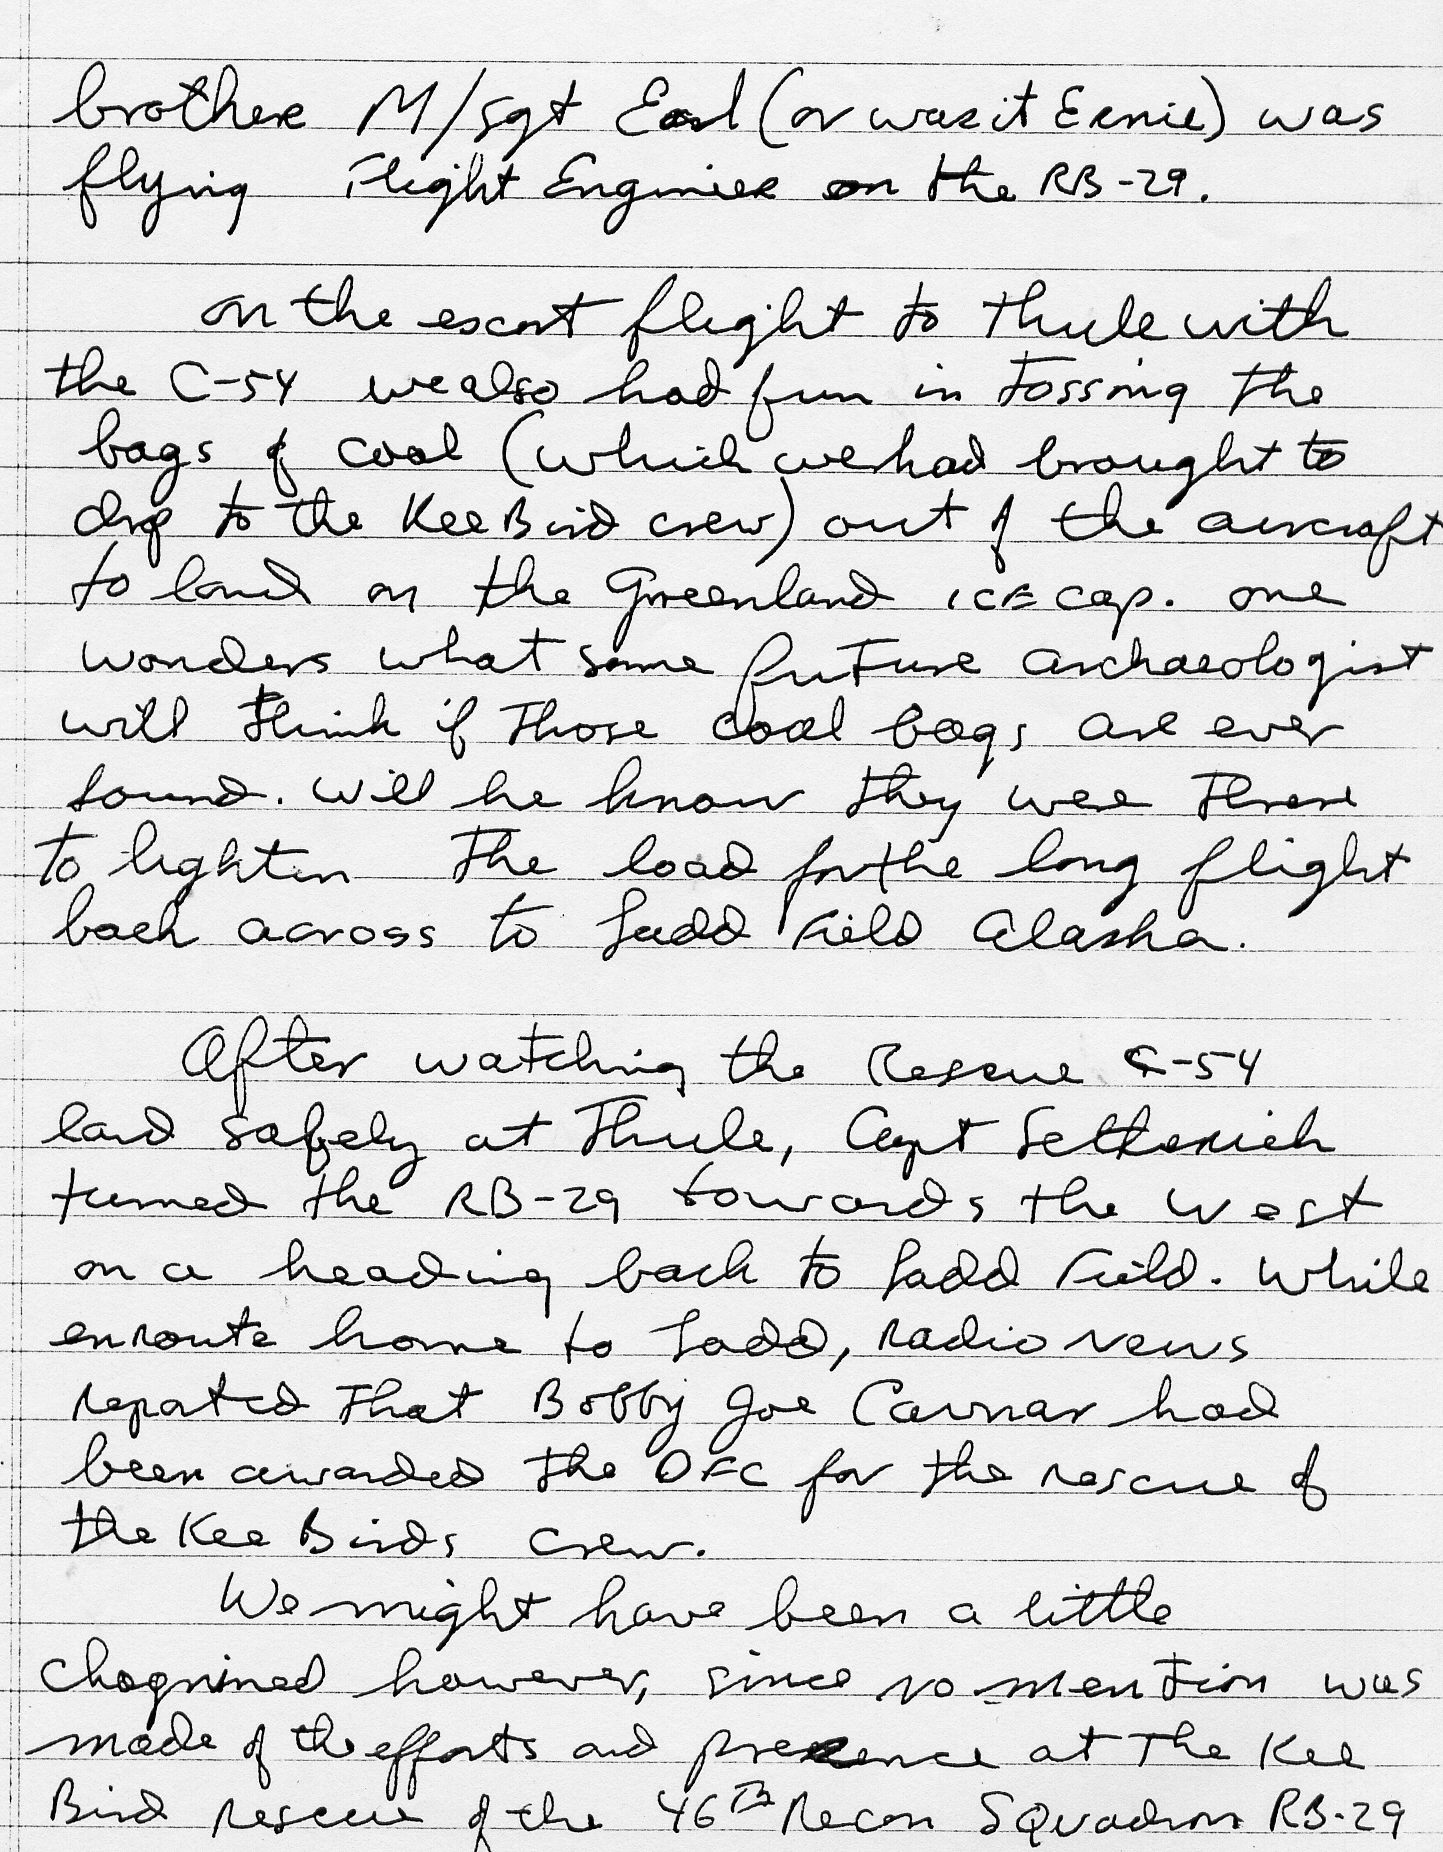 brother M/Sgt Earl (or was it Ernie) was
flying Flight Engineer on the RB-29.
on the escort flight to Thule with
the C-54 we also had fun in tossing the
bags of coal (which we had brought to
drop to the Kee Bird crew) out of the aircraft
to land on the Greenland ICE cap. one
wonders what some future archaeologist
will think if those coal bags are ever
found. Will he know they were there
to lighten the load for the long flight
back across to Ladd Field Alaska.
After watching the Rescue C-54
land safely at Thule, Capt Setterich
turned the RB-29 towards the west
on a heading back to Ladd Field. While
enroute home to Ladd, radio news
reported that Bobby Joe Cavnar had
been awarded the DFC for the rescue of
the Kee Birds crew.
We might have been a little
chagrined however, since no mention was
made of the efforts and presence at the Kee
Bird rescue of the 46TH Recon Squadron RB-29